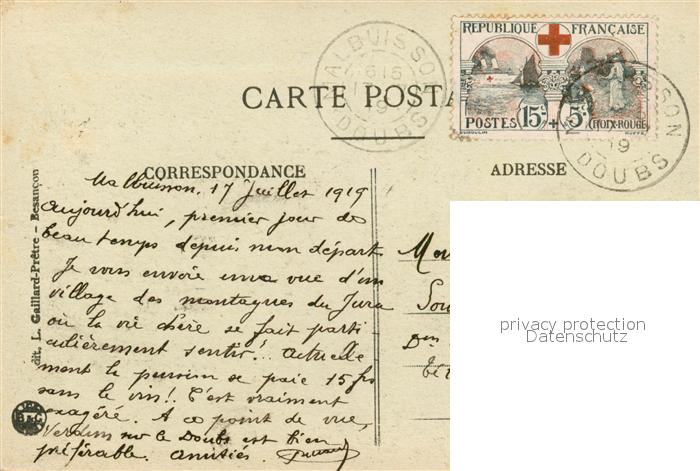 MALBUISSON
DOUBS
RÉPUBLIQUE FRANÇAISE
POSTES 15c + 5c CROIX-ROUGE
CARTE POSTA
DOUBS
CORRESPONDANCE
ADRESSE
Malbuisson, 17 Juillet 1919
Aujourd'hui, premier jour de
beau temps depuis mon départ
Je vous envoie une vue d'un
village des montagnes du Jura
où la vie chère se fait parti
culièrement sentir! Actuelle
ment la pension se paie 15 frs
sans le vin! C'est vraiment
exagéré. A ce point de vue,
Verdun sur le Doubs est bien
préférable. Amitiés
édit. L. Gaillard-Prêtre - Besançon
privacy protection
Datenschutz